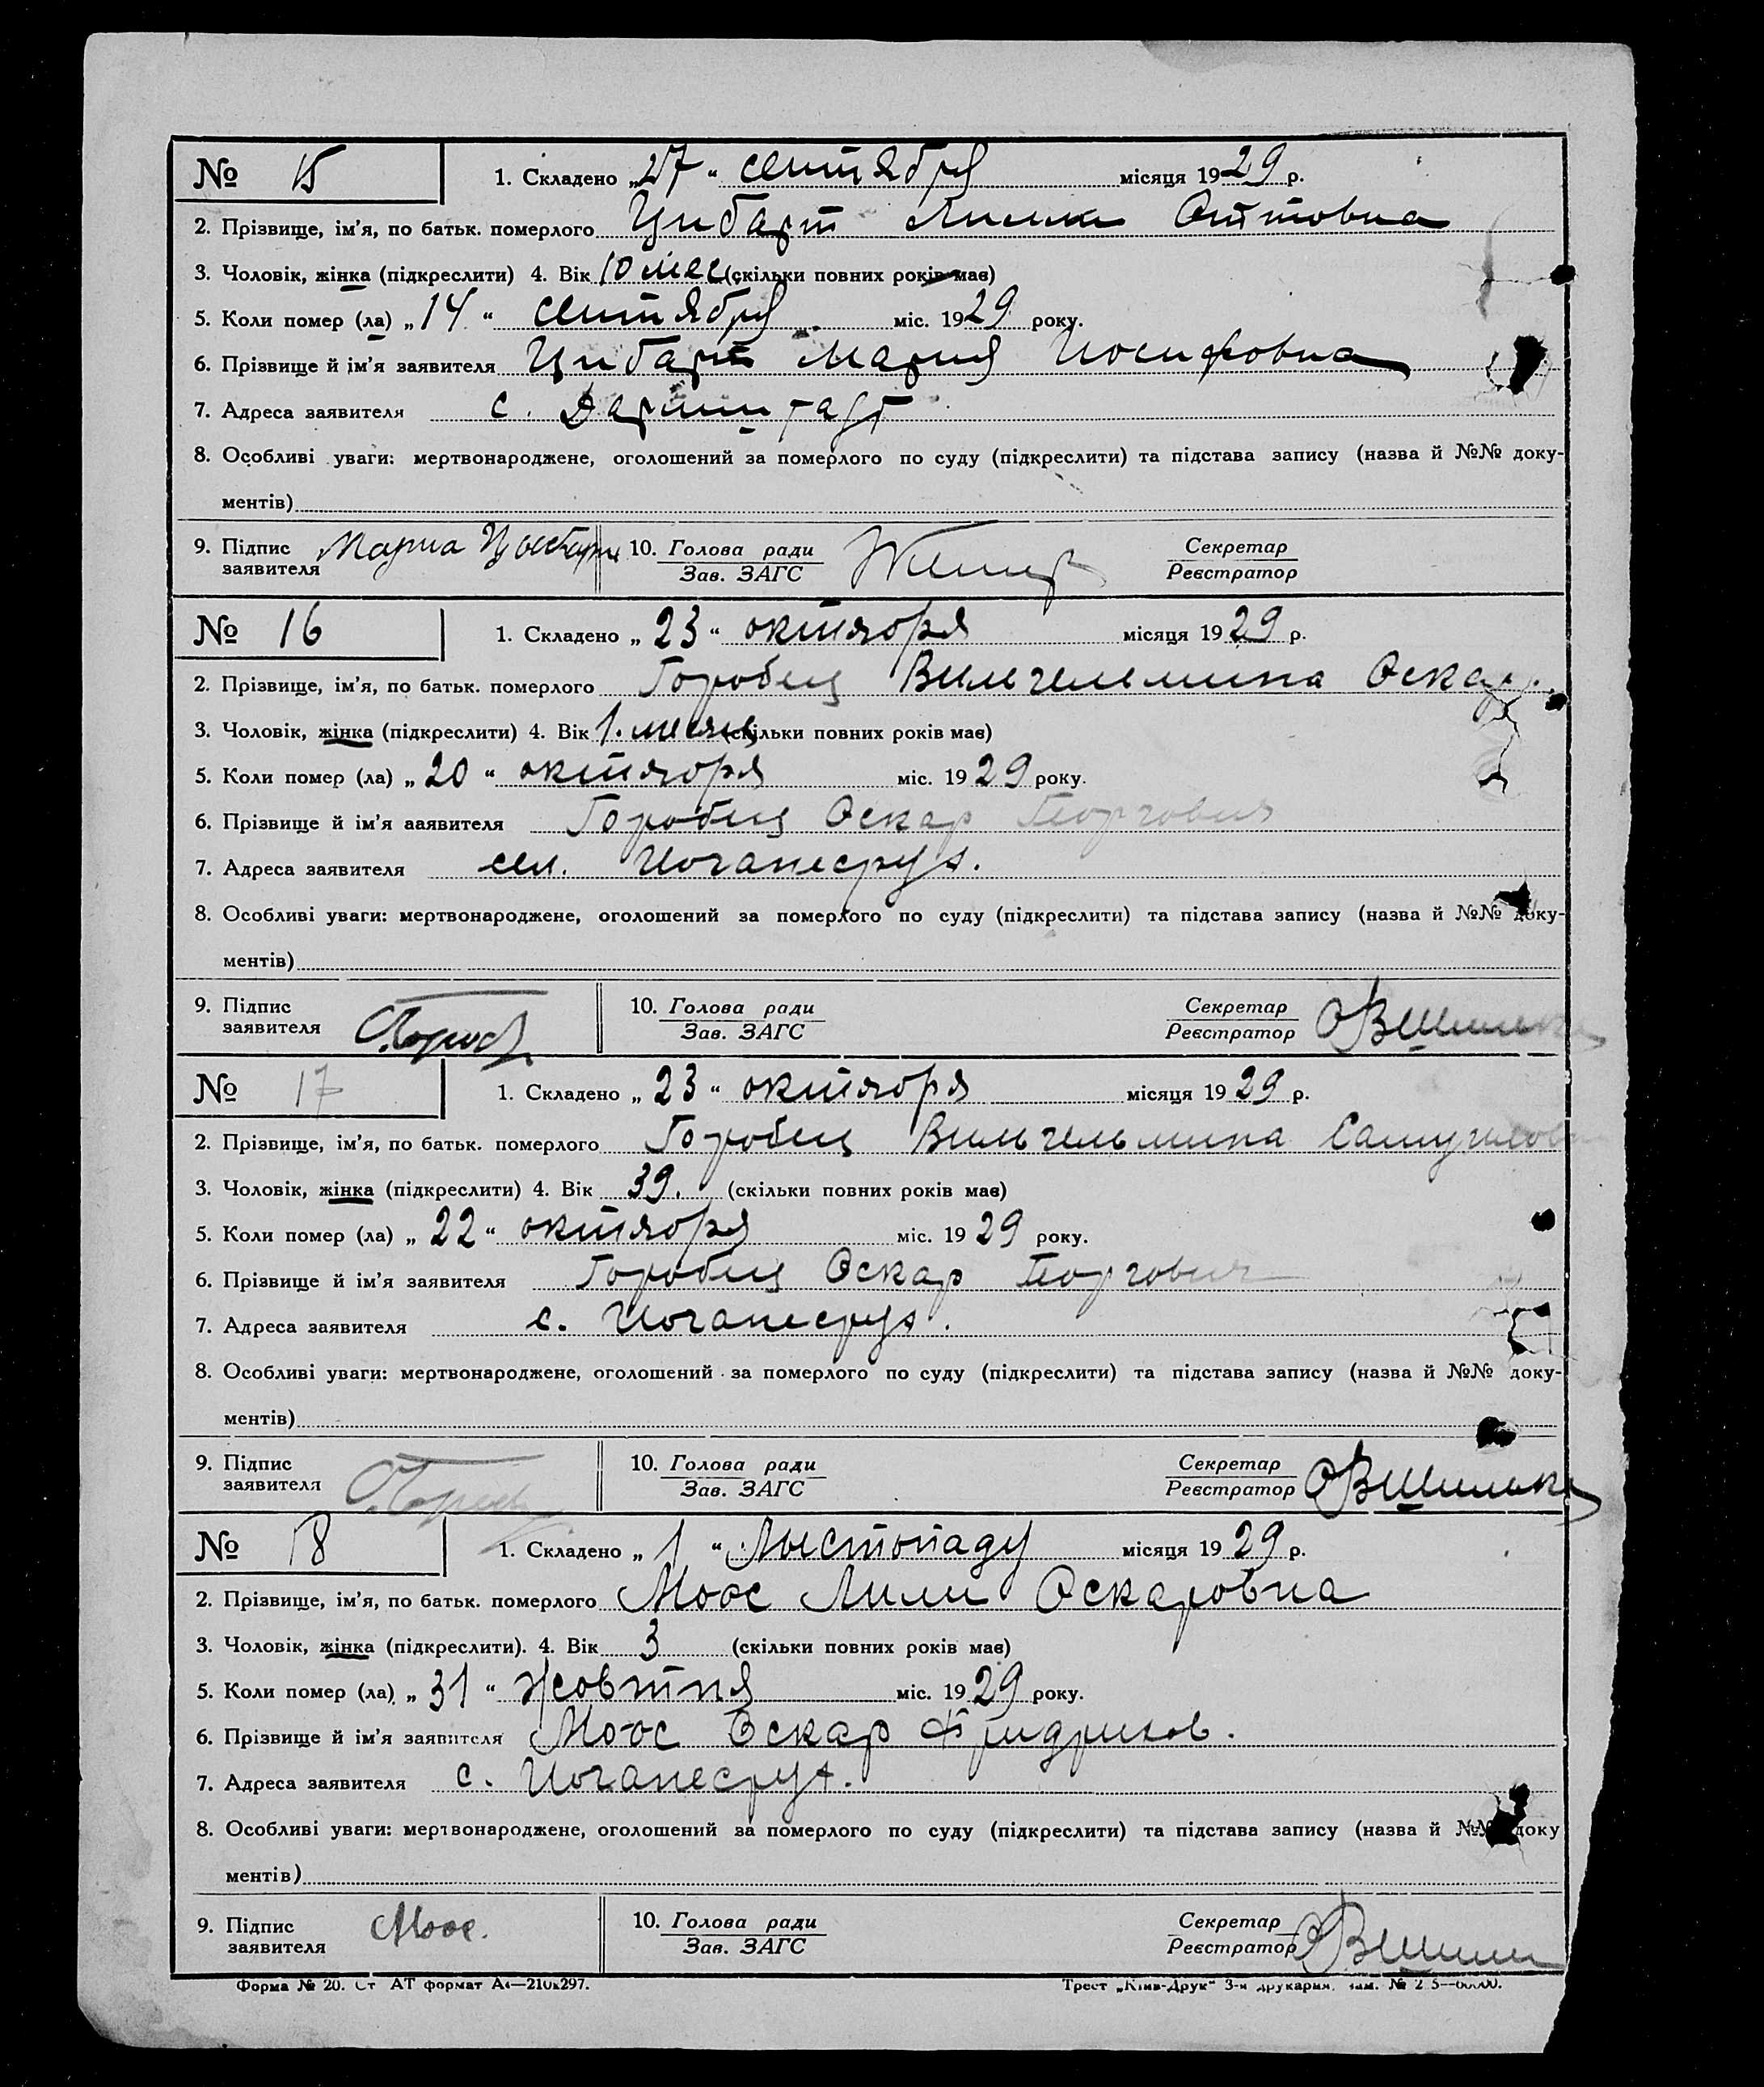 № 15 1. Складено „27“ сентября місяця 1929 р.
2. Прізвище, ім’я, по батьк. померлого Цибарт Оттовна
3. Чоловік, жінка (підкреслити) 4. Вік 10 мес (скільки повних років має)
5. Коли помер (ла) „14“ сентября міс. 1929 року.
6. Прізвище й ім’я заявителя Цибарт Мария Иосифовна
7. Адреса заявителя с. Дармштадт
8. Особливі уваги: мертвонароджене, оголошений за померлого по суду (підкреслити) та підстава запису (назва й №№ доку-
ментів)
9. Підпис Мариа 10. Голова ради Секретар
заявителя Зав. ЗАГС Реєстратор
№ 16 1. Складено „23“ октября місяця 1929 р.
2. Прізвище, ім’я, по батьк. померлого Горобец Вильгельмина Оскар.
3. Чоловік, жінка (підкреслити) 4. Вік 1. месяц (скільки повних років має)
5. Коли помер (ла) „20“ октября міс. 1929 року.
6. Прізвище й ім’я заявителя Горобец Оскар Георгович
7. Адреса заявителя сел. Иоганесруэ.
8. Особливі уваги: мертвонароджене, оголошений за померлого по суду (підкреслити) та підстава запису (назва й №№ доку-
ментів)
9. Підпис 10. Голова ради Секретар
заявителя Зав. ЗАГС Реєстратор
№ 17 1. Складено „23“ октября місяця 1929 р.
2. Прізвище, ім’я, по батьк. померлого Горобец Вильгельмина Самуиловн
3. Чоловік, жінка (підкреслити) 4. Вік 39. (скільки повних років має)
5. Коли помер (ла) „22“ октября міс. 1929 року.
6. Прізвище й ім’я заявителя Горобец Оскар Георгович
7. Адреса заявителя с. Иоганесруэ.
8. Особливі уваги: мертвонароджене, оголошений за померлого по суду (підкреслити) та підстава запису (назва й №№ доку-
ментів)
9. Підпис 10. Голова ради Секретар
заявителя Зав. ЗАГС Реєстратор
№ 18 1. Складено „1“ Лыстопаду місяця 1929 р.
2. Прізвище, ім’я, по батьк. померлого Моос Лили Оскаровна
3. Чоловік, жінка (підкреслити). 4. Вік 3 (скільки повних років має)
5. Коли помер (ла) „31“ жовтня міс. 1929 року.
6. Прізвище й ім’я заявителя Моос Оскар Фридрихов.
7. Адреса заявителя с. Иоганесруэ.
8. Особливі уваги: мертвонароджене, оголошений за померлого по суду (підкреслити) та підстава запису (назва й №№ доку
ментів)
9. Підпис Моос. 10. Голова ради Секретар
заявителя Зав. ЗАГС Реєстратор
Форма № 20. Ст АТ формат А4—210х297. Трест „Київ-Друк“ 3-я друкарня,